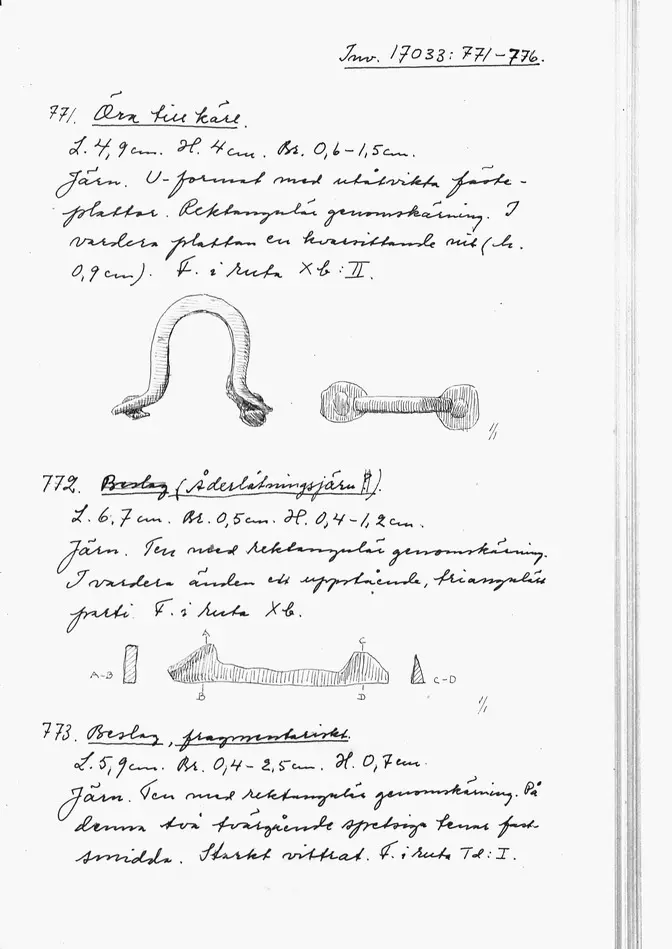 Inv. 17033: 771-776.
771. Öra till kärl.
L. 4,9 cm. H. 4 cm. Br. 0,6-1,5 cm.
Järn. U-format med utåtvikta fäste-
plattor. Rektangulär genomskärning. I
vardera plattan en kvarsittande nit (h.
0,9 cm). F. i ruta Xb:II.
1/1
772. Beslag (Åderlåtningsjärn).
L. 6,7 cm. Br. 0,5 cm. H. 0,4-1,2 cm.
Järn. Ten med rektangulär genomskärning.
I vardera änden ett uppstående, triangulärt
parti. F. i ruta Xb.
A
C
A-B
C-D
B
D
1/1
773. Beslag, fragmentariskt.
L. 5,9 cm. Br. 0,4-2,5 cm. H. 0,7 cm.
Järn. Ten med rektangulär genomskärning. På
denna två tvärgående spetsiga tenar fast-
smidda. Starkt vittrat. F. i ruta Td:I.